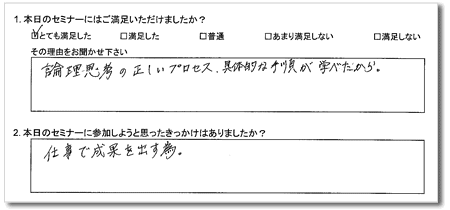 1. 本日のセミナーにはご満足いただけましたか？
☑とても満足した　□満足した　□普通　□あまり満足しない　□満足しない
その理由をお聞かせ下さい
論理思考の正しいプロセス、具体的な手順が学べたから。
2. 本日のセミナーに参加しようと思ったきっかけはありましたか？
仕事で成果を出す為。